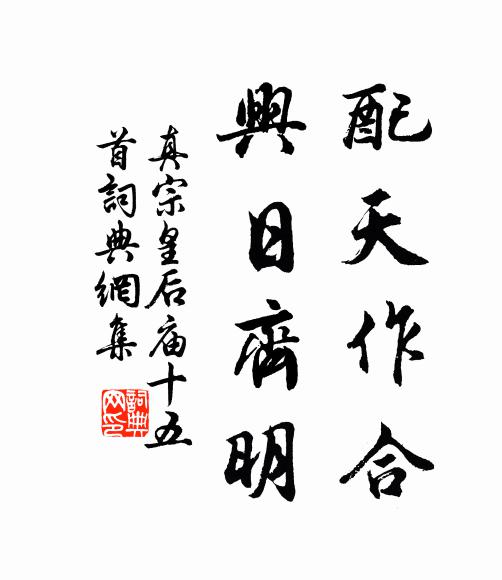 配天作合
與日齊明
真宗皇后庙十五
首詞典網集
詞典
网印